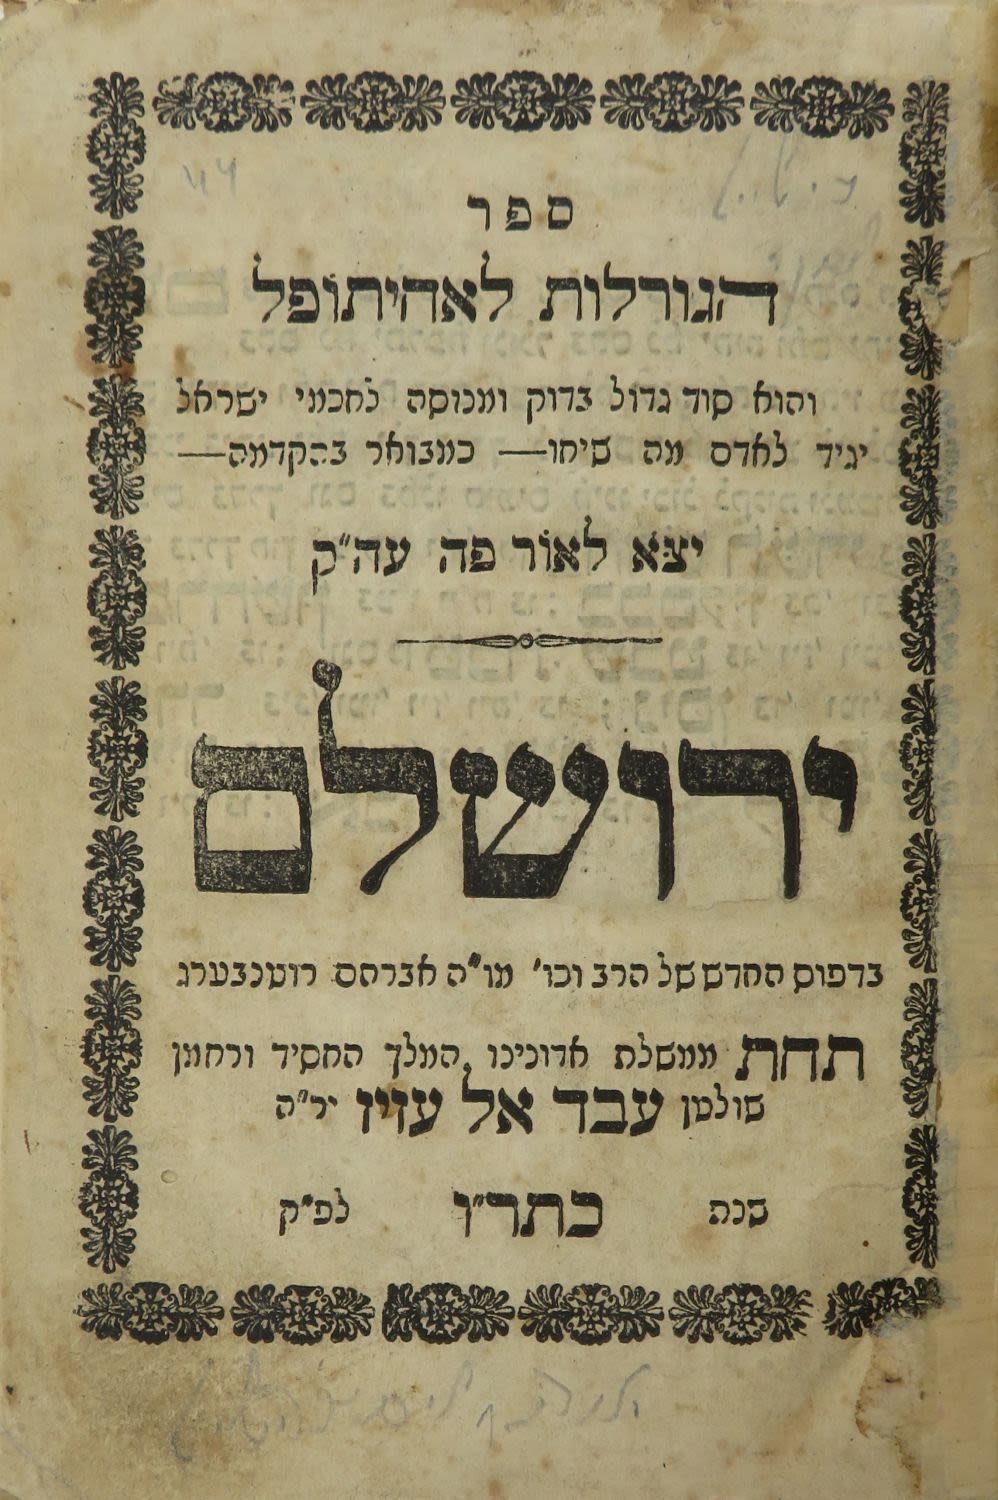 ספר
הגורלות לאחיתופל
והוא סוד גדול בדוק ומנוסה לחכמי ישראל
יגיד לאדם מה שיחו— כמבואר בהקדמה—
יצא לאור פה עה״ק
ירושלם
בדפוס החדש של הרב וכו׳ מו״ה אברהם רוטנבערג
תחת ממשלת אדונינו המלך החסיד ורחמן
שולטן עבד אל עזיז יר״ה
שנת כתר״ו לפ״ק